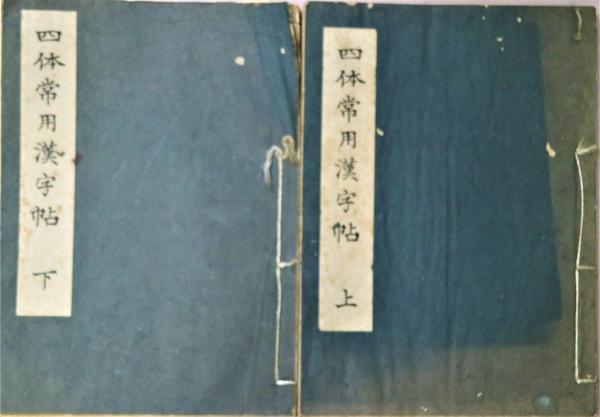 四体常用漢字帖 上
四体常用漢字帖 下